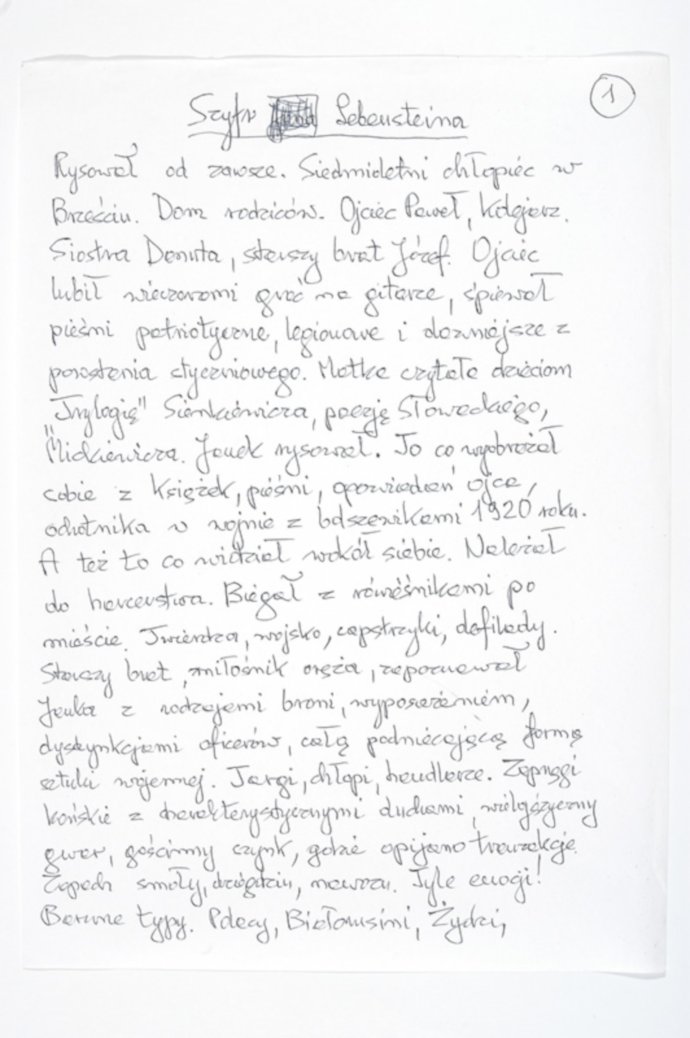 1
Szyfr Lebensteina
Rysował od zawsze. Siedmioletni chłopiec w
Brześciu. Dom rodziców. Ojciec Paweł, kolejarz.
Siostra Danuta, starszy brat Józef. Ojciec
lubił wieczorami grać na gitarze, śpiewał
pieśni patriotyczne, legionowe i dawniejsze z
powstania styczniowego. Matka czytała dzieciom
"Trylogię" Sienkiewicza, poezję Słowackiego,
Mickiewicza. Janek rysował. To co wyobrażał
sobie z książek, pieśni, opowiadań ojca,
ochotnika w wojnie z bolszewikami 1920 roku.
A też to co widział wokół siebie. Należał
do harcerstwa. Biegał z rówieśnikami po
mieście. Twierdza, wojsko, capstrzyki, defilady.
Starszy brat, miłośnik oręża, zapoznawał
Janka z rodzajami broni, wyposażeniem,
dystynkcjami oficerów, całą podniecającą formą
sztuki wojennej. Targi, chłopi, handlarze. Zaprzęgi
końskie z charakterystycznymi duchami, wielojęzyczny
gwar, gościnny szynk, gdzie opijano transakcje.
Zapach smoły, dziegciu, nawozu. Tyle emocji!
Barwne typy. Polacy, Białorusini, Żydzi,